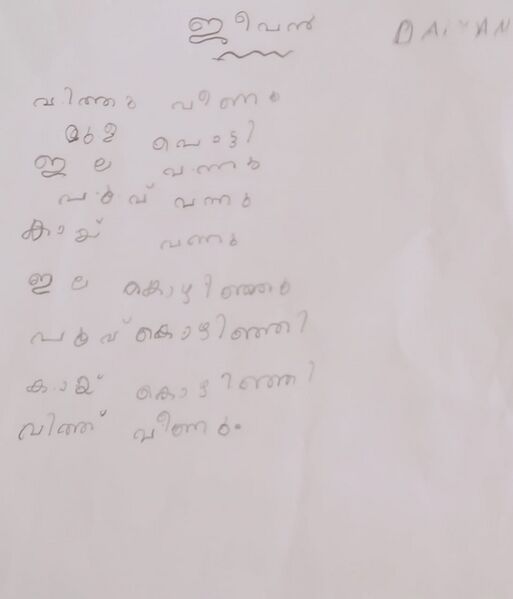 ജീവൻ DAiYAN
വിത്തു വീണു
മുള പൊട്ടി
ഇല വന്നു
പൂവ് വന്നു
കായ് വന്നു
ഇല കൊഴിഞ്ഞു
പൂവ് കൊഴിഞ്ഞി
കായ് കൊഴിഞ്ഞി
വിത്ത് വീണു.